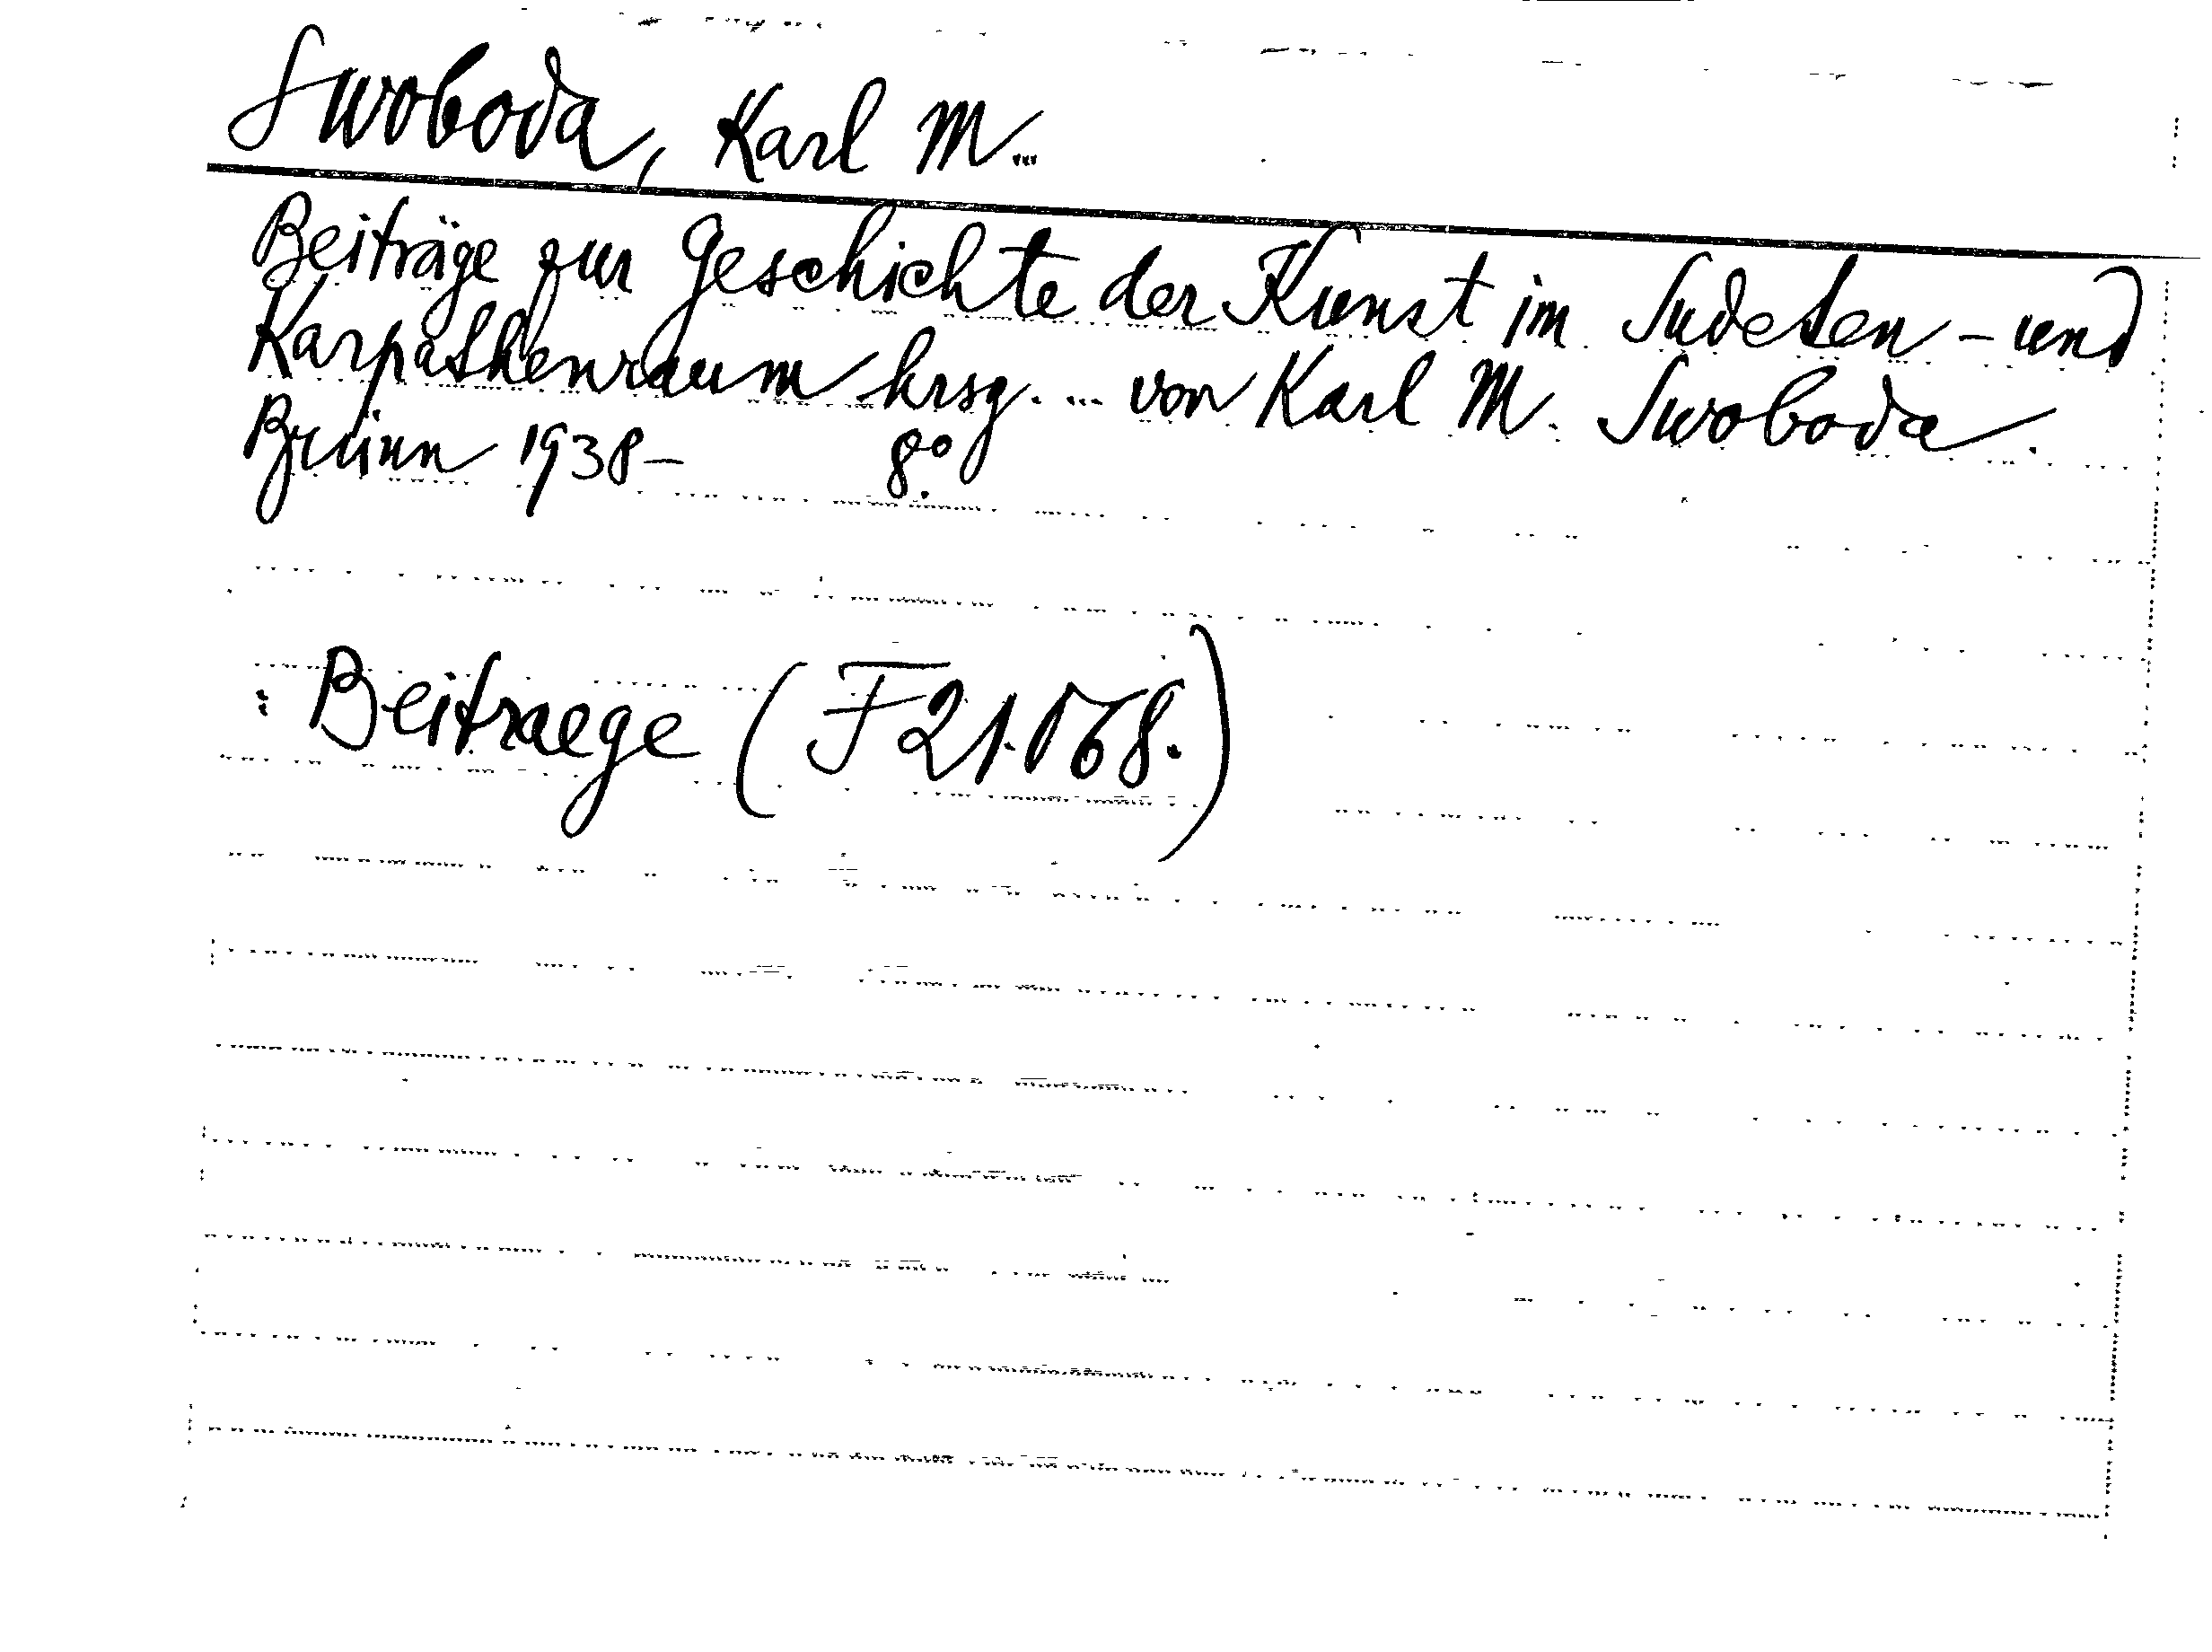 Swoboda, Karl M...
Beiträge zur Geschichte der Kunst im Sudeten - und
Karpathenraum hrsg. ... von Karl M. Swoboda.
Brünn 1938- 8°.
: Beitraege (F 21.768.)